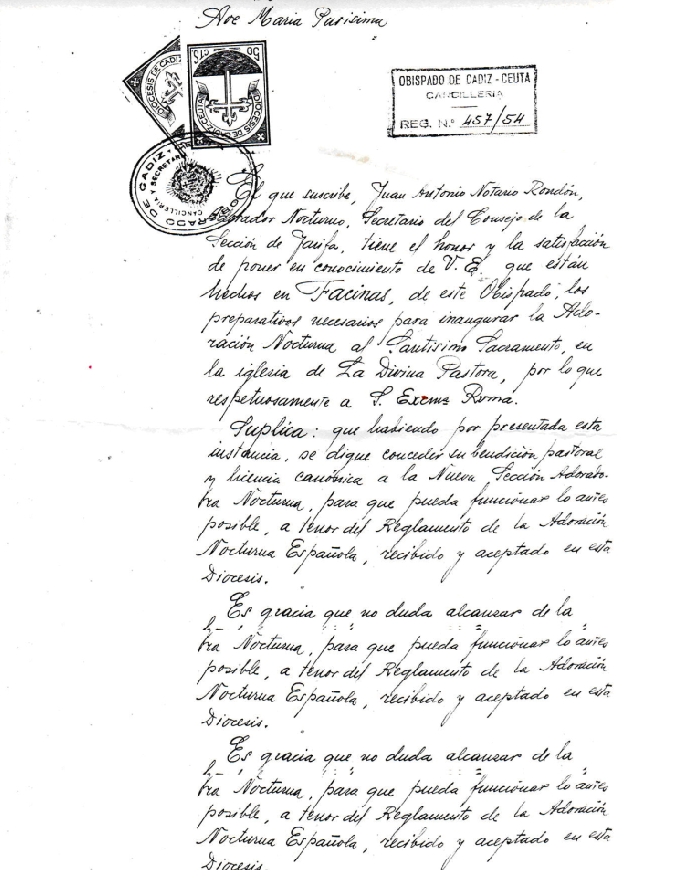 Ave Maria Purisima
50
CTS.
DIOCESIS DE CADIZ-CEUTA
DIOCESIS DE CADIZ
OBISPADO DE CADIZ - CEUTA
CANCILLERIA
REG. N.º 457/54
OBISPADO DE CADIZ
CANCILLERIA Y SECRETARIA
El que suscribe, Juan Antonio Notario Rondón,
Adorador Nocturno, Secretario del Consejo de la
Sección de Tarifa, tiene el honor y la satisfacción
de poner en conocimiento de V. E. que están
hechos en Facinas, de este Obispado, los
preparativos necesarios para inaugurar la Ado-
ración Nocturna al Santísimo Sacramento, en
la iglesia de La Divina Pastora, por lo que
respetuosamente a S. Excma Rvma.
Suplica: que habiendo por presentada esta
instancia, se digne conceder su bendición pastoral
y licencia canónica a la Nueva Sección Adorado-
ra Nocturna, para que pueda funcionar lo antes
posible, a tenor del Reglamento de la Adoración
Nocturna Española, recibido y aceptado en esta
Diocesis.
Es gracia que no duda alcanzar de la
ra Nocturna, para que pueda funcionar lo antes
posible, a tenor del Reglamento de la Adoración
Nocturna Española, recibido y aceptado en esta
Diocesis.
Es gracia que no duda alcanzar de la
ra Nocturna, para que pueda funcionar lo antes
posible, a tenor del Reglamento de la Adoración
Nocturna Española, recibido y aceptado en esta
Diocesis.